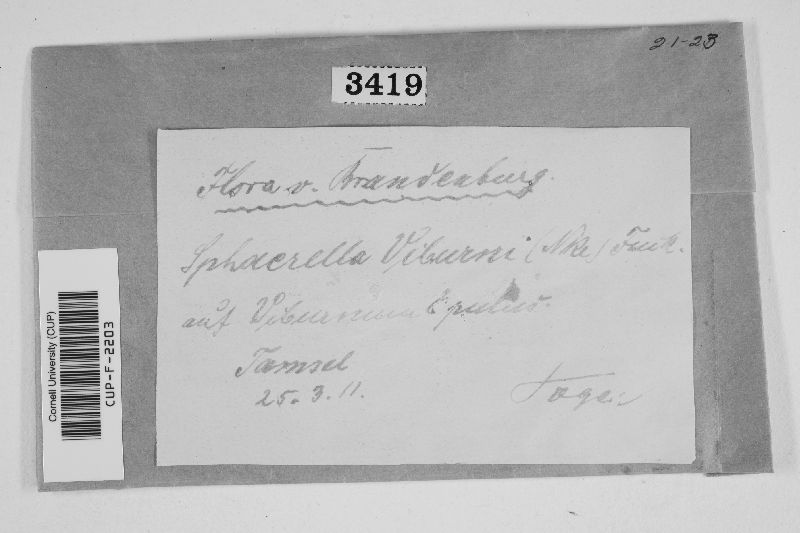 21-23
3419
Flora v. Brandenburg.
Sphaerella Viburni (Nke) Fuck.
auf Viburnum Opulus.
Tamsel
25. 3. 11.
Cornell University (CUP)
CUP-F-2203